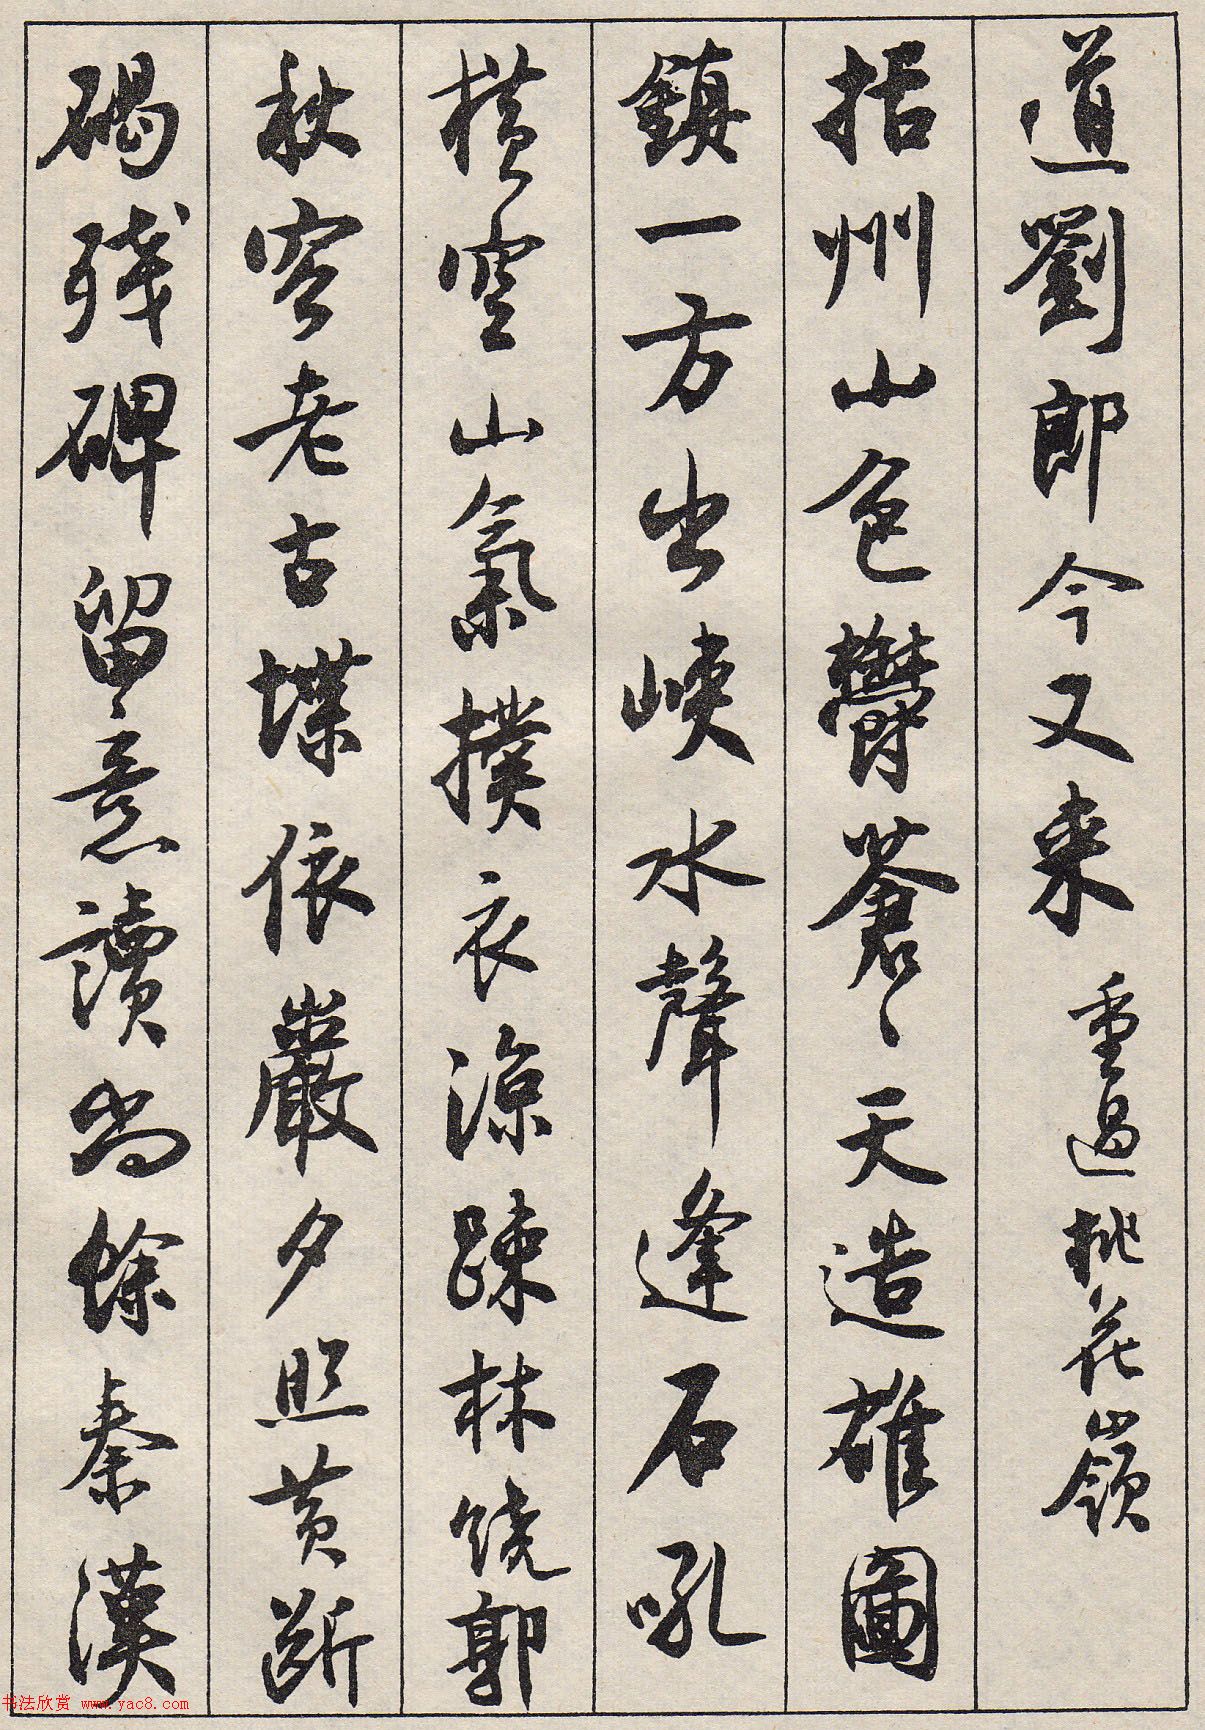 道劉郎今又来 重過桃花嶺
括州山色鬱蒼〻天造雄圖
鎮一方出峽水聲逢石吼
横空山氣撲衣涼踈林饶郭
秋容老古堞依巖夕照黄断
碣残碑留意讀尚餘秦漢
书法欣赏 www.yac8.com